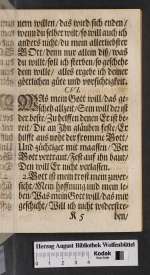 nem willen / das wird sich enden /
wenn du selber wilt / so will auch ich
anders nicht / du mein allerliebster
Gott / denn nur allein diß / was
du wilt: soll ich sterben / so geschehe
dein wille / alles ergebe ich deiner
göttlichen güte und vorsichtigkeit.
CVI.
Was mein Gott will / das ge-
scheh allzeit / Sein will der ist
der beste / Zu helffen denen Er ist be-
reit / Die an Ihn gläuben feste / Er
hilfft aus noht der fromme Gott /
Und züchtiget mit maassen / Wer
Gott vertraut / Fest auf ihn baut /
Den will Er nicht verlassen.
2. Gott ist mein trost mein zuver-
sicht / Mein hoffnung und mein le-
ben / Was mein Gott will / das mir
geschicht / Will ich nicht widerstre-
K 5 ben /
Herzog August Bibliothek Wolfenbüttel
Kodak